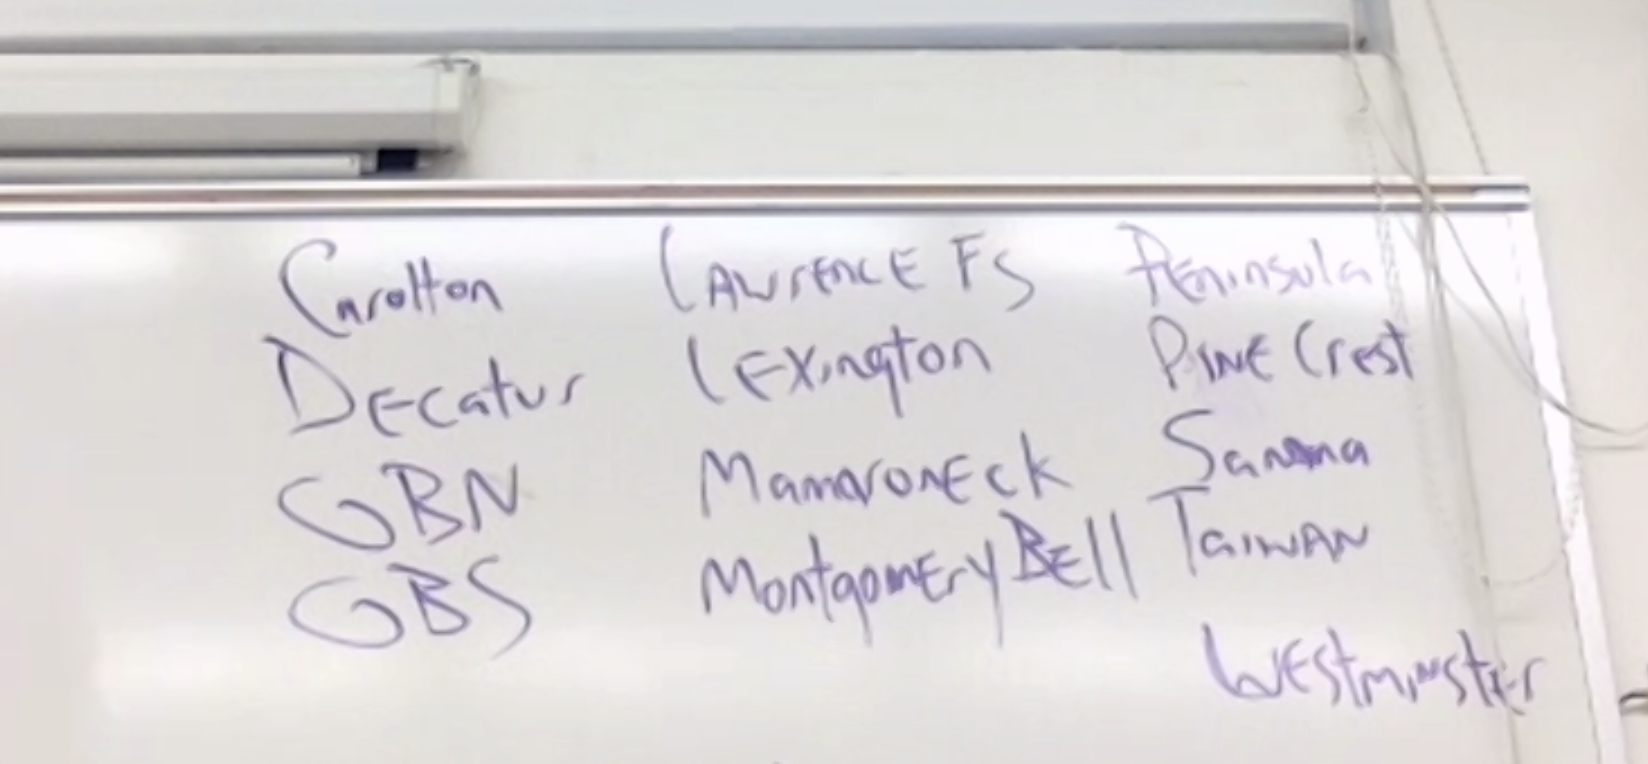 Carolton
Decatur
GBN
GBS
Lawrence FS
Lexington
Mamaroneck
Montgomery Bell
Peninsula
Pine Crest
Taiwan
Westminster